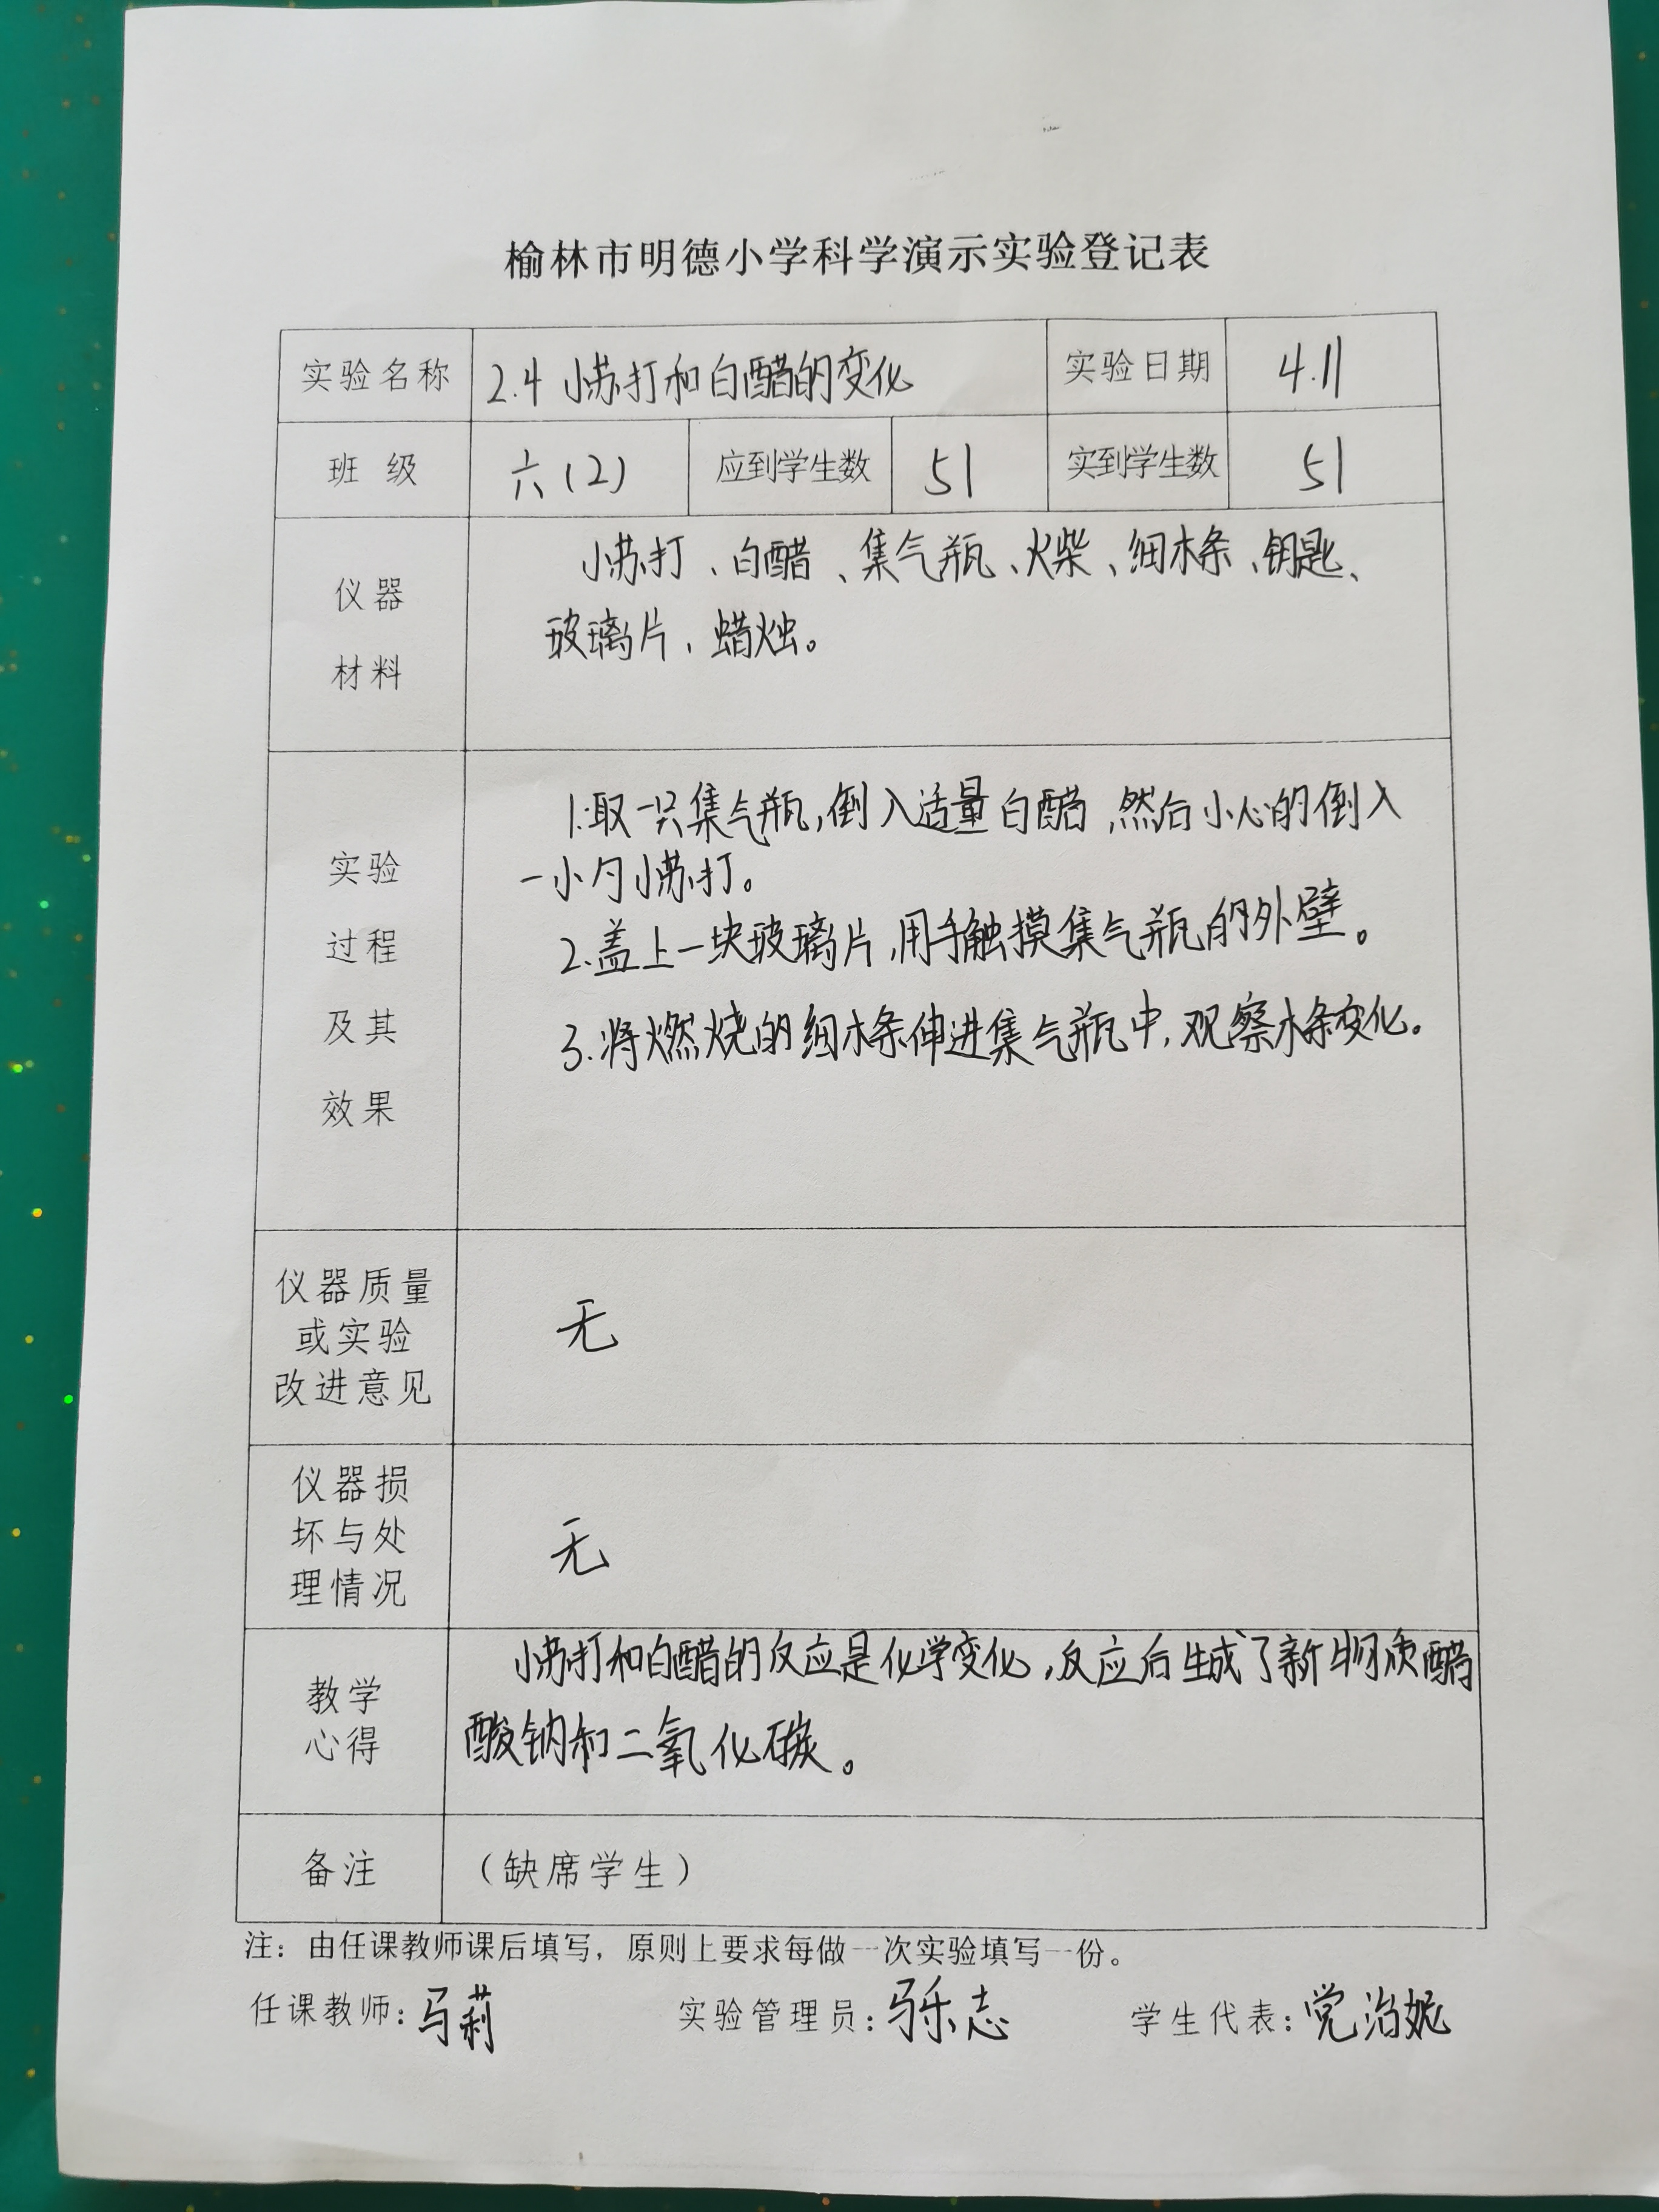 榆林市明德小学科学演示实验登记表
实验名称 2.4 小苏打和白醋的变化 实验日期 4.11
班 级 六(2) 应到学生数 51 实到学生数 51
仪器
材料
小苏打、白醋、集气瓶、火柴、细木条、钥匙、
玻璃片、蜡烛。
实验
过程
及其
效果
1.取一只集气瓶,倒入适量白醋,然后小心的倒入
一小勺小苏打。
2.盖上一块玻璃片,用手触摸集气瓶的外壁。
3.将燃烧的细木条伸进集气瓶中,观察木条变化。
仪器质量
或实验
改进意见
无
仪器损
坏与处
理情况
无
教学
心得
小苏打和白醋的反应是化学变化,反应后生成了新物质醋
酸钠和二氧化碳。
备注 (缺席学生)
注:由任课教师课后填写,原则上要求每做一次实验填写一份。
任课教师:马莉 实验管理员:马乐志 学生代表:党治妮